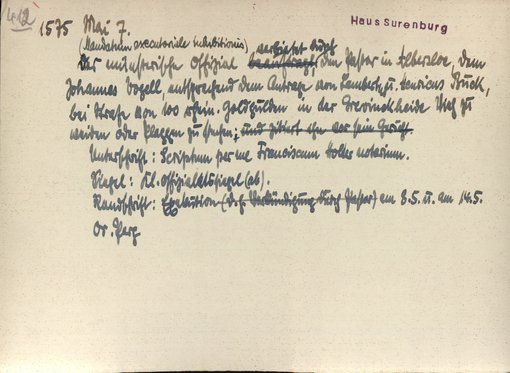 412
1575 Mai 7.
Haus Surenburg
(Mandatum executoriale inhibitionis) verbietet durch
Der münsterische Offizial beauftragt, den Pastor in Albersloe, dem
Johannes Vogell, entsprechend dem Antrage von Lambert u. Henricus Buck,
bei Strafe von 100 rhein. Goldgulden in der Grevinckheide Vieh zu
weiden oder Plaggen zu stechen; und zitiert ihn vor sein Gericht.
Unterschrift: Scriptum per me Franciscum notarium.
Siegel: Kl. Offizialatssiegel (ab).
Randschrift: Exekution (d.h. Verkündigung durch Pastor) am 8.5. u. am 14.5.
Or. Perg